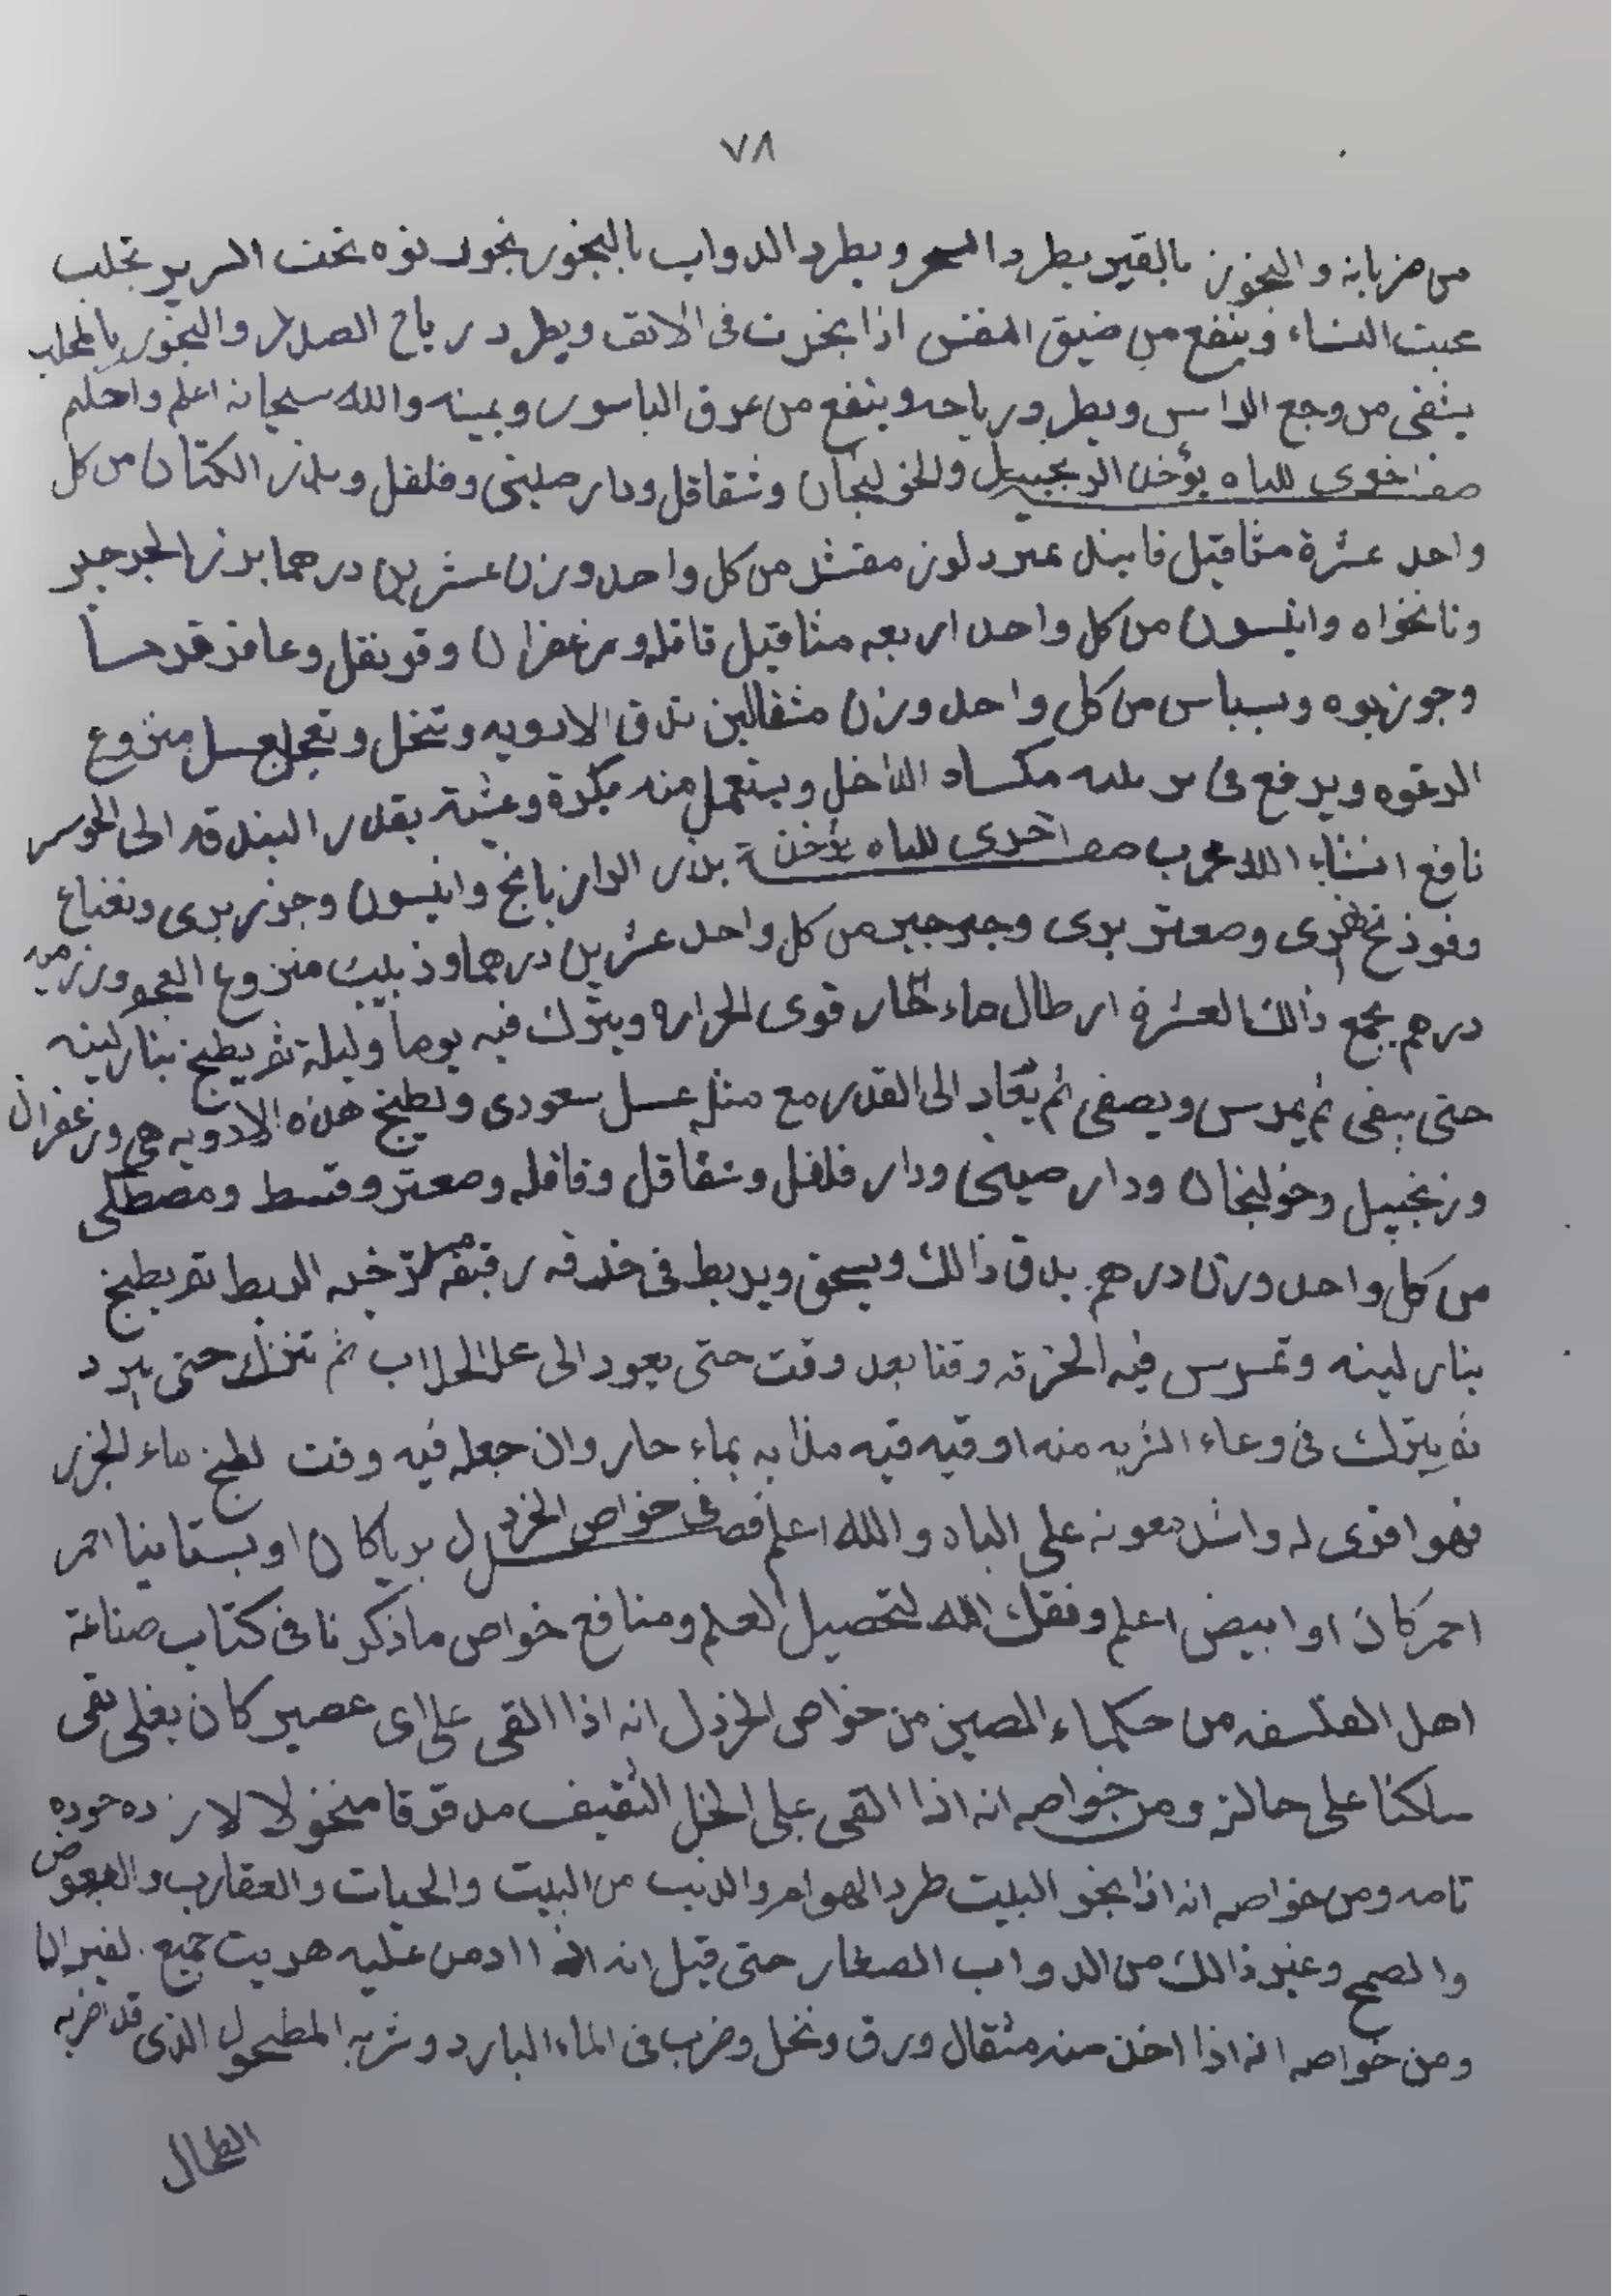 ٧٨
من ضربانه والبخور بالقير يطرد السحر ويطرد الدواب بالبخور بخور نوه تحت السرير تجلب
محبت النساء وينفع من ضيق النفس اذا بخرت في الانف ويطرد رياح الصدر والبخور بالمحلب
يشفى من وجع الراس ويطرد رياحه وينفع من عرق الباسور ويمينه والله سبحانه اعلم واحلم
صفه اخرى للباه يؤخذ الزنجبيل والخولنجان وشقاقل ودار صينى وفلفل وبذر الكتان من كل
واحد عشرة مثاقيل فانيذ لوز مقشر من كل واحد وزن عشرين درهما بذر الجرجير
ونانخواه وانيسون من كل واحد اربعه مثاقيل قاقله وزعفران وقرنفل وعاقرقرحا
وجوزبوه وبسباس من كل واحد وزن مثقالين تدق الادويه وتنخل وتعجن بعسل منزوع
الرغوه ويرفع فى الداخل ويستعمل منه بكرة وعشية بقدر البندقه الى
نافع انشاء الله مجرب صفه اخرى للباه يؤخذ بذر الرازيانج وانيسون وجزر برى ونعناع
وفوذنج نهرى وصعتر برى وجرجير من كل واحد عشرين درهما وزبيب منزوع العجم وزن ميه
درهم يجمع ذالك لعشرة ارطال ماء حار قوى الحراره ويترك فيه يوما وليلة ثم يطبخ بنار لينه
حتى يبقى ثم يمرس ويصفى ثم يعاد الى القدر مع مثله عسل سعودى وتطبخ هذه الادويه هي وزعفران
وزنجبيل وخولنجان ودار صينى ودار فلفل وشقاقل وقاقله وصعتر وقسط ومصطكى
من كل واحد وزن درهم يدق ذالك ويسحق ويربط فى خرقه رقيقه الربط ثم يطبخ
بنار لينه وتمرس فيه الخرقه وقتا بعد وقت حتى يعود الى الجلاب ثم تنزل حتى يبرد
ثم يترك فى وعاء الشربه منه اوقيه قيه مذابه بماء حار وان جعله فيه وقت لطبخ ماء الجزر
فهو اقوى له واشد معونه على الباه والله اعلم فصل فى خواص الخردل بريا كان او بستانيا احمر
احمر كان او ابيض اعلم وفقك الله لتحصيل العلم ومنافع خواص ما ذكرنا فى كتاب صناعة
اهل الفلسفه من حكماء الصين من خواص الخردل انه اذا القى على اى عصير كان يغلى بقى
ساكنا على حالته ومن خواصه انه اذا القى على الخل الثقيف مدقوقا منخولا لا زده جوده
تامه ومن خواصه انه اذا بخر البيت طرد الهوام والدبيب من البيت والحيات والعقارب والبعوض
والصمج وغير ذالك من الدواب الصغار حتى قيل انه اذا ادمن عليه هربت جميع
ومن خواصه انه اذا اخذ منه مثقال ورق ونخل وضرب فى الماء البارد وشربه المطحول الذى قد اضر به
الطحال